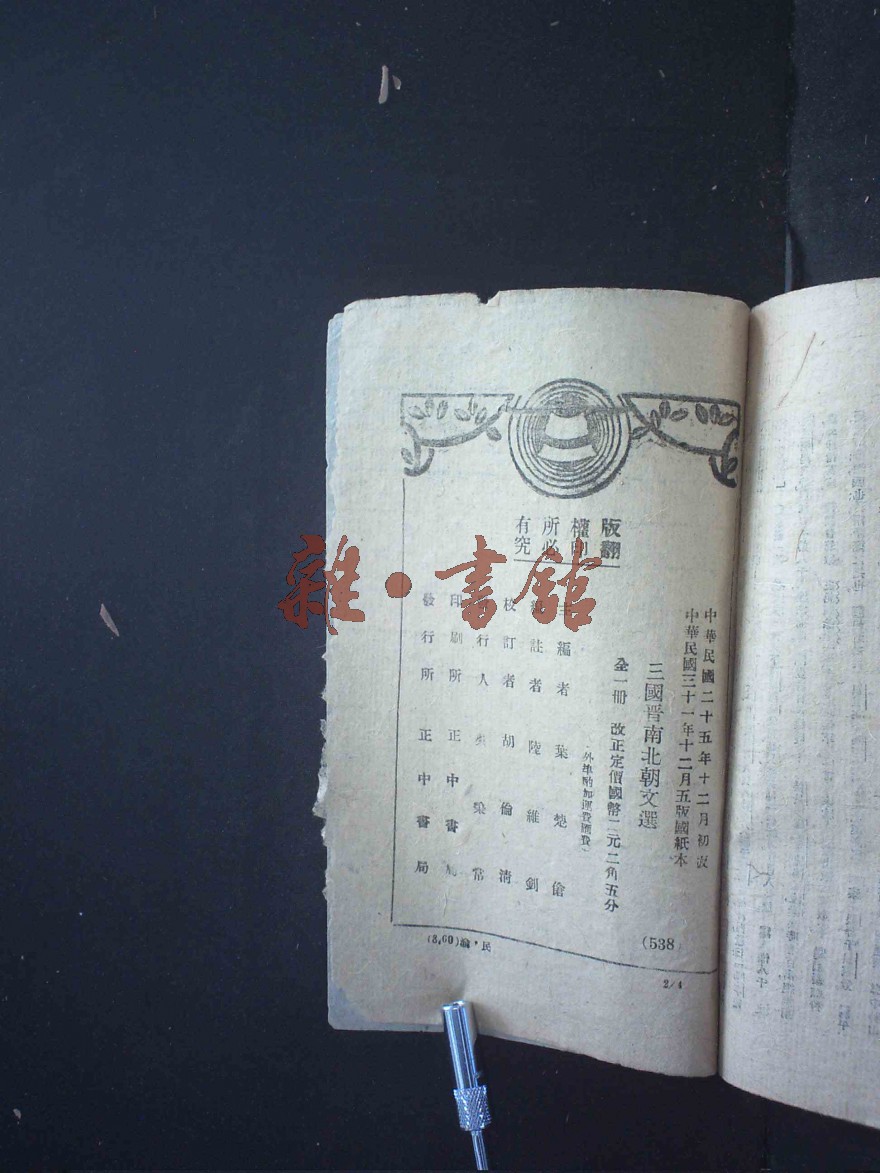 版權所有
翻印必究
中華民國二十五年十二月初版
中華民國三十一年十二月五版國紙本
三國晋南北朝文選
全一冊 改正定價國幣二元二角五分
外埠酌加運費匯費
主編者 葉楚傖
註者 陸維釗
校訂者 胡倫清
行人 常
印刷所 正中書局
發行所 正中書局
(538
2/4
雜·書館